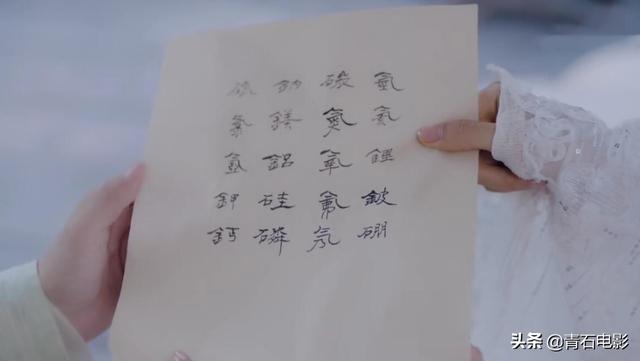 氫氦鋰鈹硼
碳氮氧氟氖
鈉鎂鋁硅磷
硫氯氬鉀鈣
头条 @青石电影